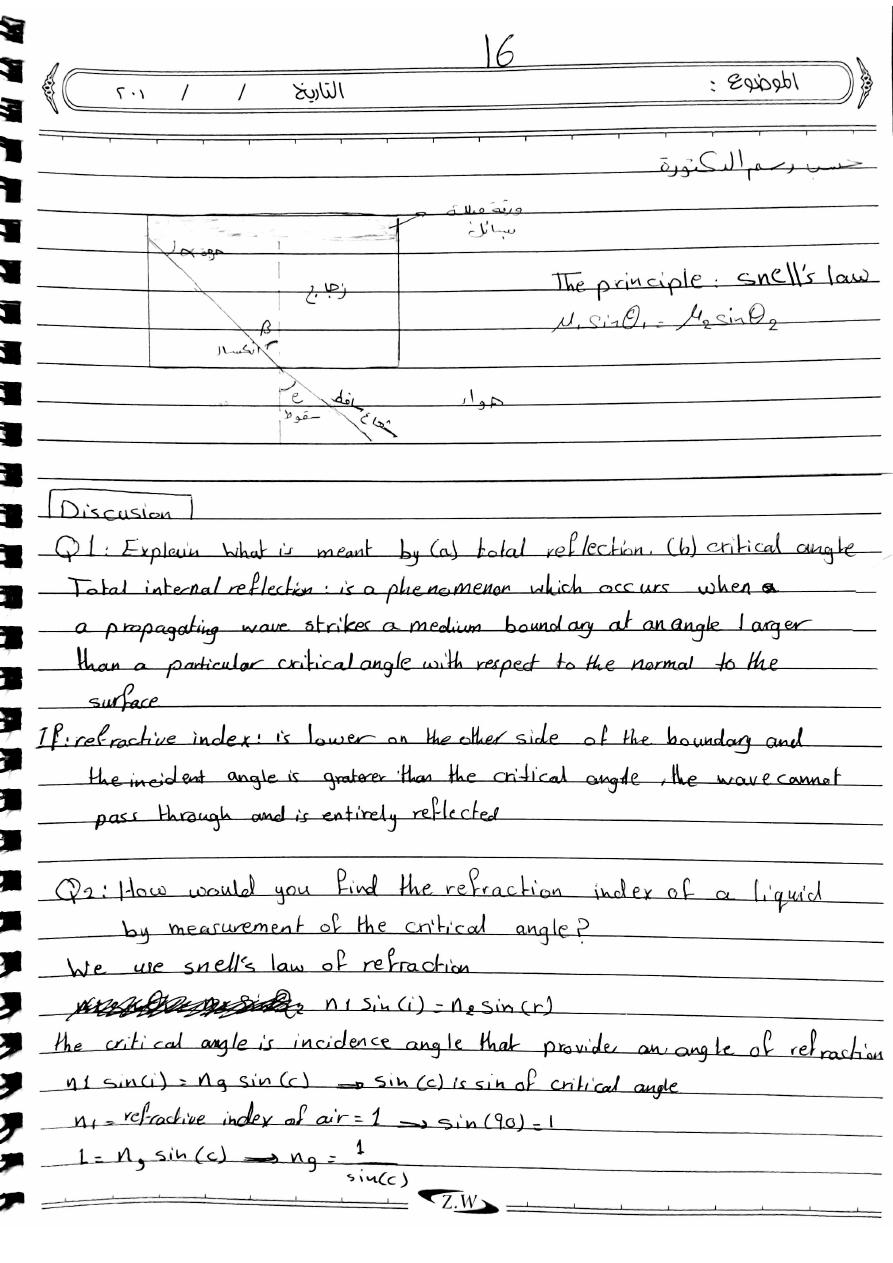 16
الموضوع :
التاريخ / / ٢٠١
حسب رسم الدكتورة
ورقة مبللة
بسائل
زجاج
The principle : snell's law
μ₁ sinθ₁ = μ₂ sinθ₂
β
انكسار
e
سقوط
شعاع ساقط
هواء
Discusion
Q1: Explain what is meant by (a) total reflection. (b) critical angle
Total internal reflection : is a phenomenon which occurs when a
a propagating wave strikes a medium boundary at an angle larger
than a particular critical angle with respect to the normal to the
surface
If: refractive index: is lower on the other side of the boundary and
the incident angle is graterer than the critical angle, the wave cannot
pass through and is entirely reflected
Q2: How would you find the refraction index of a liquid
by measurement of the critical angle?
We use snell's law of refraction
n1 sin(i) = n2 sin(r)
the critical angle is incidence angle that provide an angle of refraction
n1 sin(i) = ng sin(c) → sin(c) is sin of critical angle
n1 = refractive index of air = 1 → sin(90) = 1
1 = ng sin(c) → ng = 1
sin(c)
Z.W